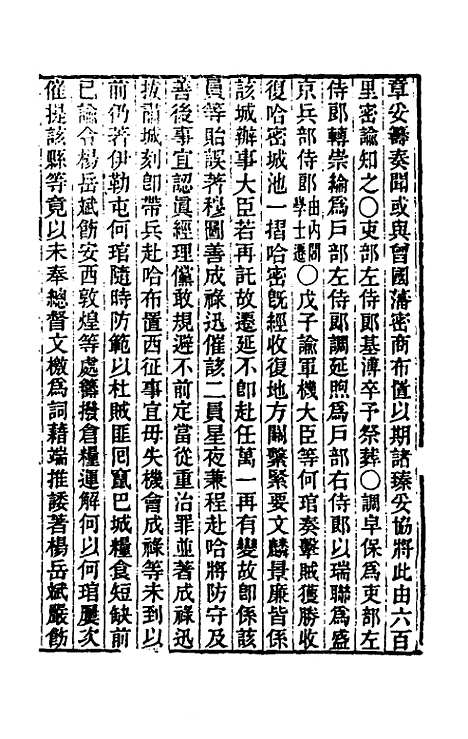 章妥籌奏聞或與曾國藩密商布置以期諸臻妥協將此由六百
里密諭知之○吏部左侍郎基溥卒予祭葬○調卓保爲吏部左
侍郎轉崇綸爲戶部左侍郎調延煦爲戶部右侍郎以瑞聯爲盛
京兵部侍郎由內閣學士遷○戊子諭軍機大臣等何琯奏擊賊獲勝收
復哈密城池一摺哈密旣經收復地方關繫緊要文麟景廉皆係
該城辦事大臣若再託故遷延不卽赴任萬一再有變故卽係該
員等貽誤著穆圖善成祿迅催該二員星夜兼程赴哈將防守及
善後事宜認眞經理儻敢規避不前定當從重治罪並著成祿迅
拔肅城刻卽帶兵赴哈布置西征事宜毋失機會成祿等未到以
前仍著伊勒屯何琯隨時防範以杜賊匪囘竄巴城糧食短缺前
已諭令楊岳斌飭安西敦煌等處籌撥倉糧運解何以何琯屢次
催提該縣等竟以未奉總督文檄爲詞藉端推諉著楊岳斌嚴飭